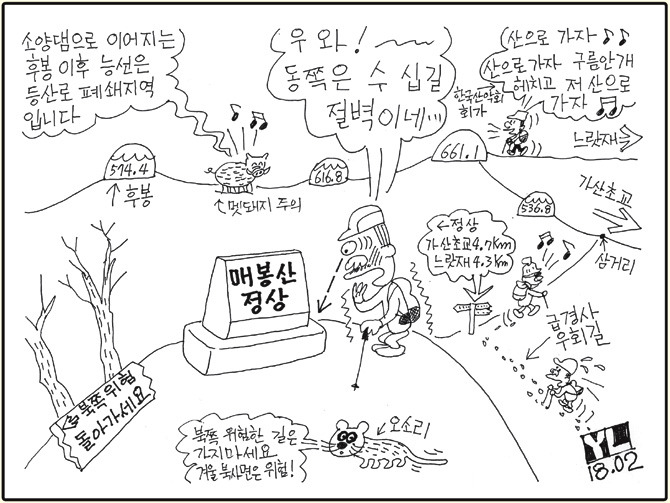 소양댐으로 이어지는
후봉 이후 능선은
등산로 폐쇄지역
입니다
우와! ~
동쪽은 수 십길
절벽이네...
(산으로 가자 ♪♪
산으로가자 구름안개
헤치고 저 산으로
가자 ♬
한국산악회
회가
느랏재
574.4
↑후봉
↑멧돼지 주의
616.8
661.1
536.8
가산초교
삼거리
←정상
가산초교4.7Km
느랏재4.3Km
매봉산
정상
급경사
우회길
북쪽위험
돌아가세요
북쪽 위험한 길은
가지마세요
겨울 북사면은 위험!
오소리
YL
18.02